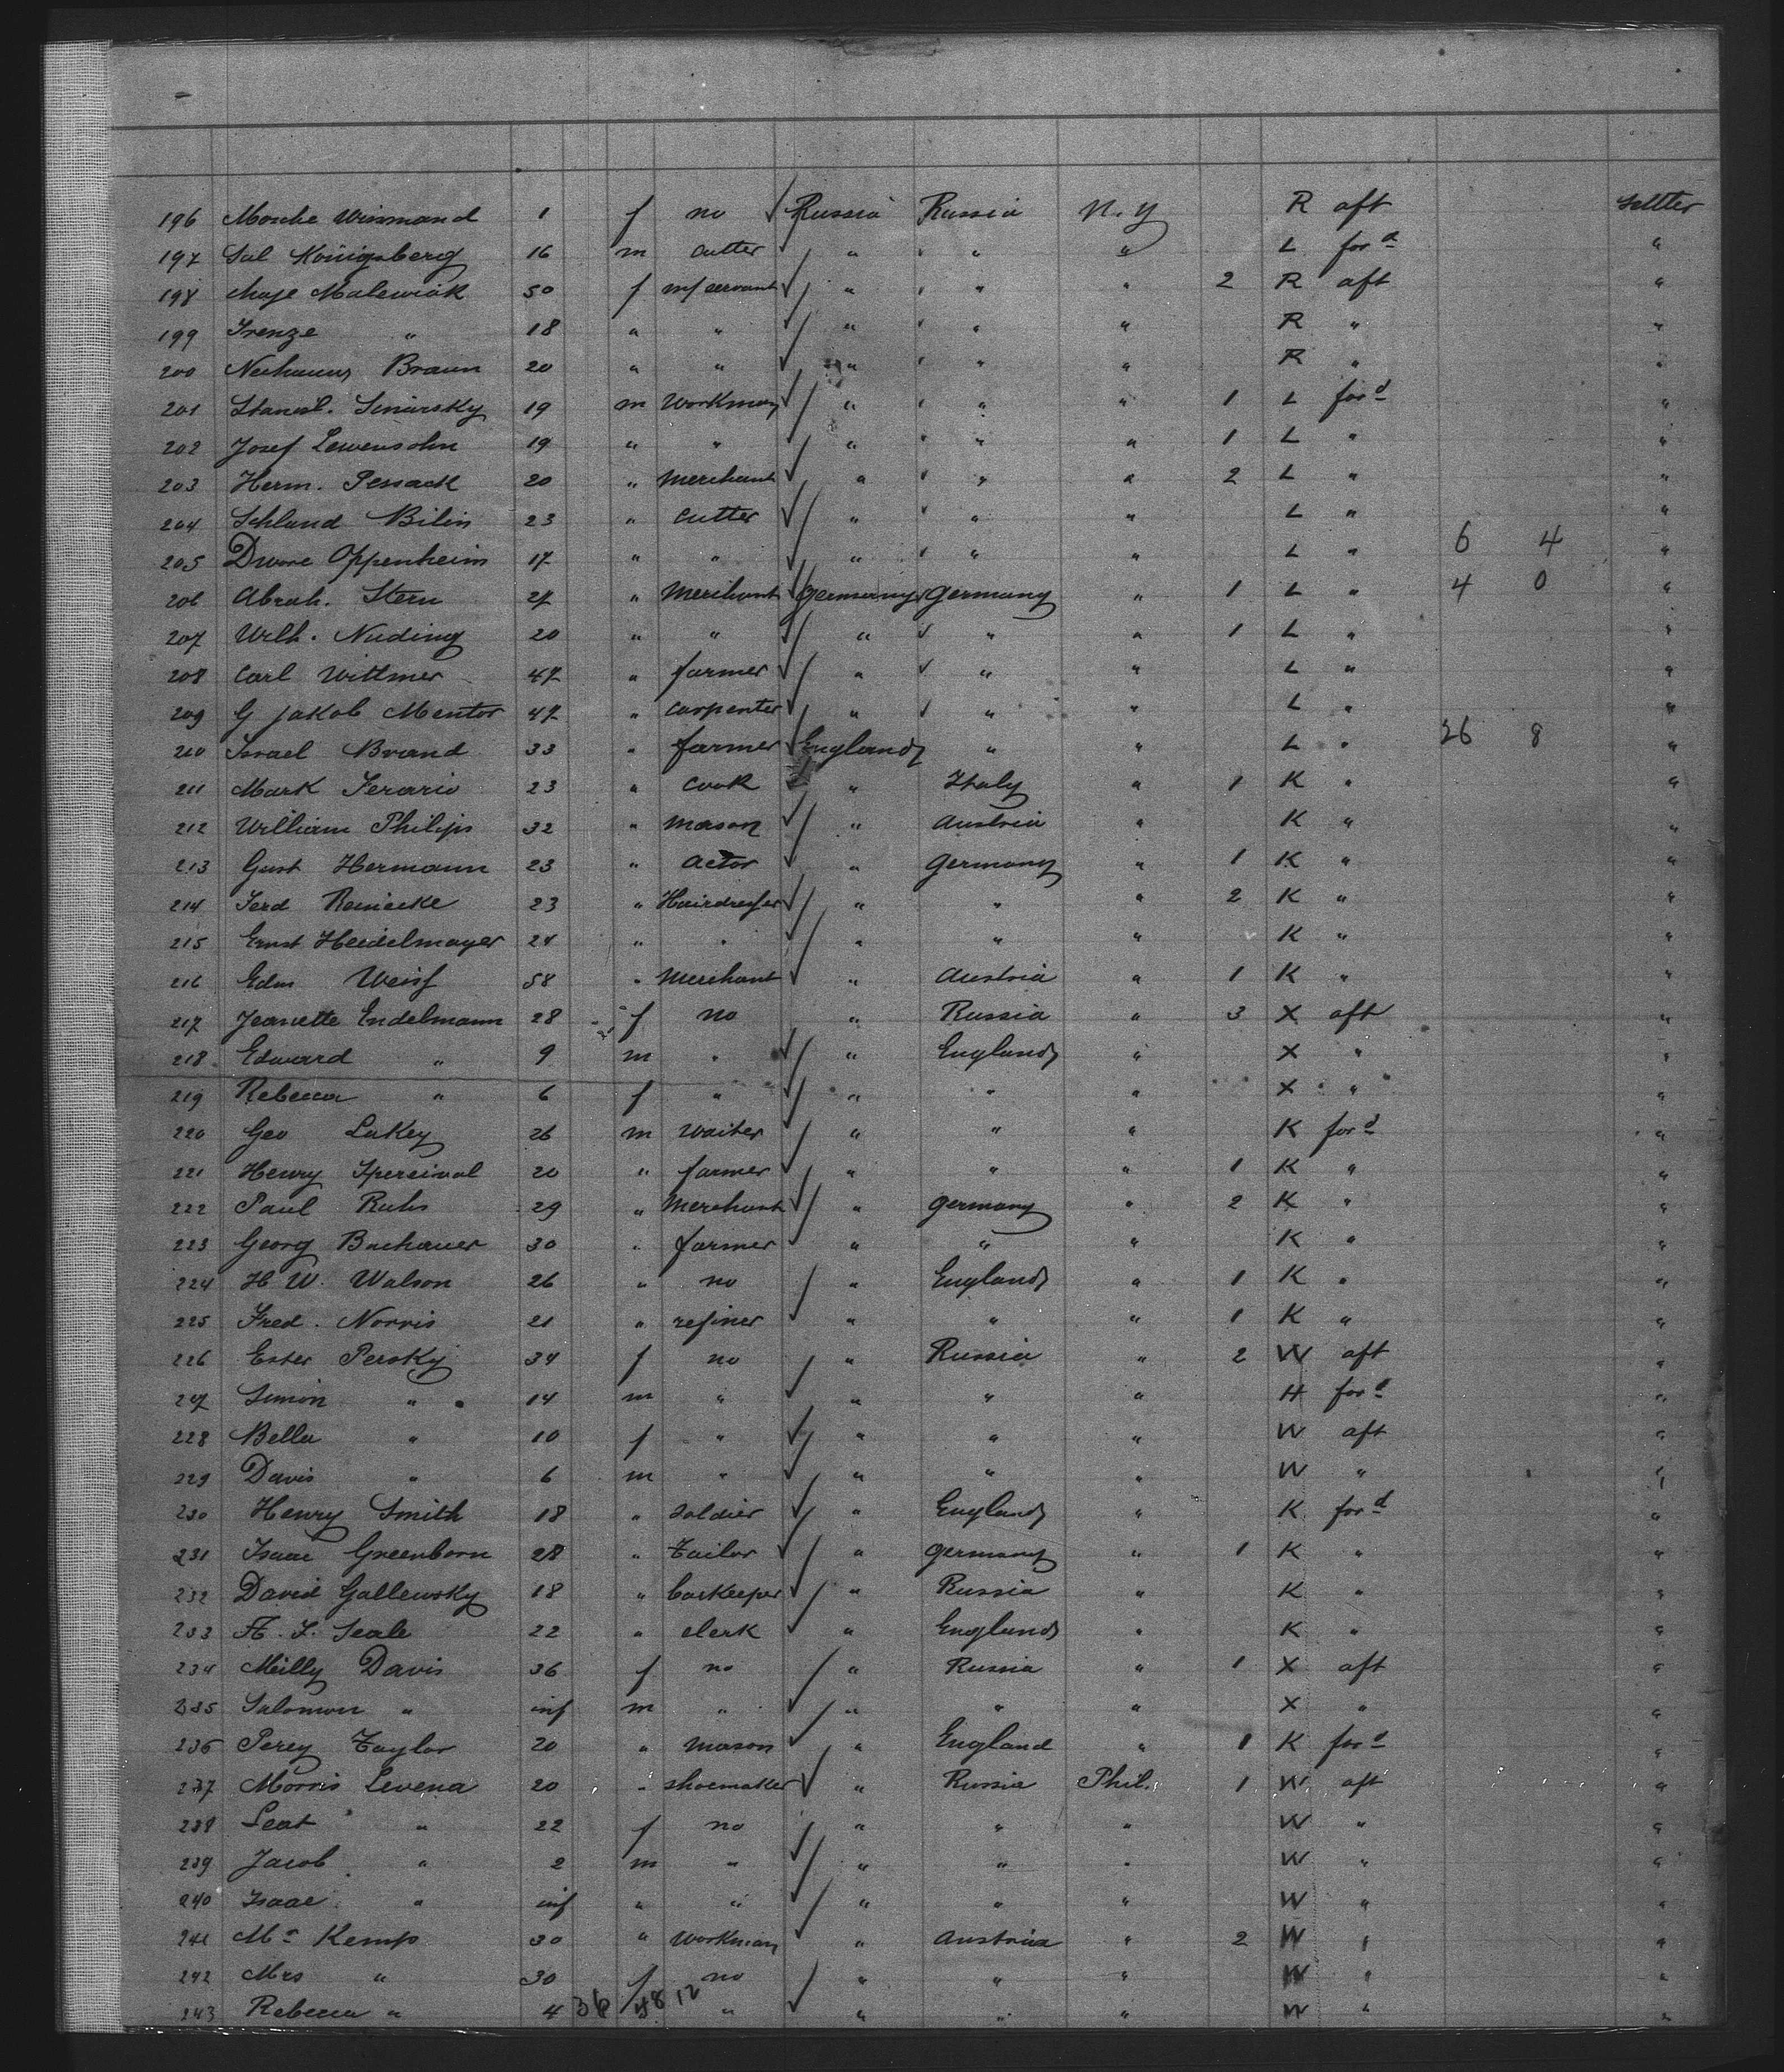 196 Mosche Wismand 1 f no Russia Russia N.Y R aft settler
197 Sal Königsberg 16 m cutter " " " L ford "
198 Malewiak 50 f servant " " " 2 R aft "
199 " 18 " " " " " R " "
200 Braun 20 " " " " " R " "
201 19 m Workman " " " 1 L ford "
202 Josef Lewensohn 19 " " " " " 1 L " "
203 Herm. Pessack 20 " Merchant " " " 2 L " "
204 Bilin 23 " cutter " " " L " "
205 Dwore Oppenheim 17 " " " " " L " 6 4 "
206 Abrah. Stern 27 " Merchant Germany Germany " 1 L " 4 0 "
207 Wilh. Nuding 20 " " " " " 1 L " "
208 Carl Wittmer 47 " farmer " " " L " "
209 G Jakob Mentor 47 " carpenter " " " L " "
210 Israel Brand 33 " farmer England " " L " 26 8 "
211 Mark Ferario 23 " cook " Italy " 1 K " "
212 William Philips 32 " mason " Austria " K " "
213 Gust Hermann 23 " actor " Germany " 1 K " "
214 Ferd Reinecke 23 " Hairdresser " " " 2 K " "
215 Ernst Heidelmayer 24 " " " " " K " "
216 Edm Weiss 58 " Merchant " Austria " 1 K " "
217 Jeanette Endelmann 28 f no " Russia " 3 X aft "
218 Edward " 9 m " " England " X " "
219 Rebecca " 6 f " " " " X " "
220 Geo Lakey 26 m waiter " " " K ford "
221 Henry Spersival 20 " farmer " " " 1 K " "
222 Paul Ruhs 29 " Merchant " Germany " 2 K " "
223 Georg Bachauer 30 " farmer " " " K " "
224 H W. Walson 26 " no " England " 1 K " "
225 Fred. Norris 21 " refiner " " " 1 K " "
226 Ester Persky 34 f no " Russia " 2 W aft "
227 Simon " 14 m " " " " H ford "
228 Bella " 10 f " " " " W aft "
229 Davis " 6 m " " " " W " "
230 Henry Smith 18 " soldier " England " K ford "
231 Isaac Greenborn 28 " Tailor " Germany " 1 K " "
232 David Gallewsky 18 " barkeeper " Russia " K " "
233 Seale 22 " clerk " England " K " "
234 Milly Davis 36 f no " Russia " 1 X aft "
235 Salomon " inf m " " " " X " "
236 Percy Taylor 20 " mason " England " 1 K ford "
237 Morris Levena 20 " shoemaker " Russia Phil. 1 W aft "
238 Leat " 22 f no " " " W " "
239 Jacob " 2 m " " " " W " "
240 Isaac " inf " " " " " W " "
241 Mr Kemp 30 " workman " Austria " 2 W " "
242 Mrs " 30 f no " " " W " "
243 Rebecca " 4 36 48 12 " " " " W " "